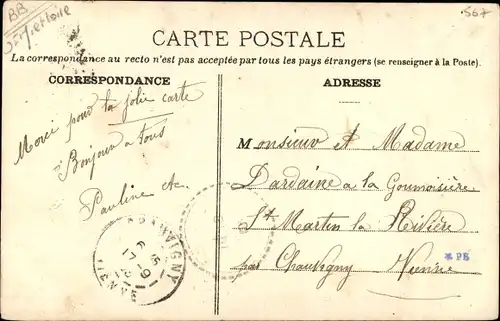 BB
567
CARTE POSTALE
La correspondance au recto n'est pas acceptée par tous les pays étrangers (se renseigner à la Poste).
CORRESPONDANCE
ADRESSE
Merci pour ta jolie carte
Bonjour a tous
Pauline
Monsieur et Madame
Dardaine a la Goumoisière
St Martin la Rivière
par Chauvigny Vienne
* PB
CHAUVIGNY
6 15
17 -9
VIENNE